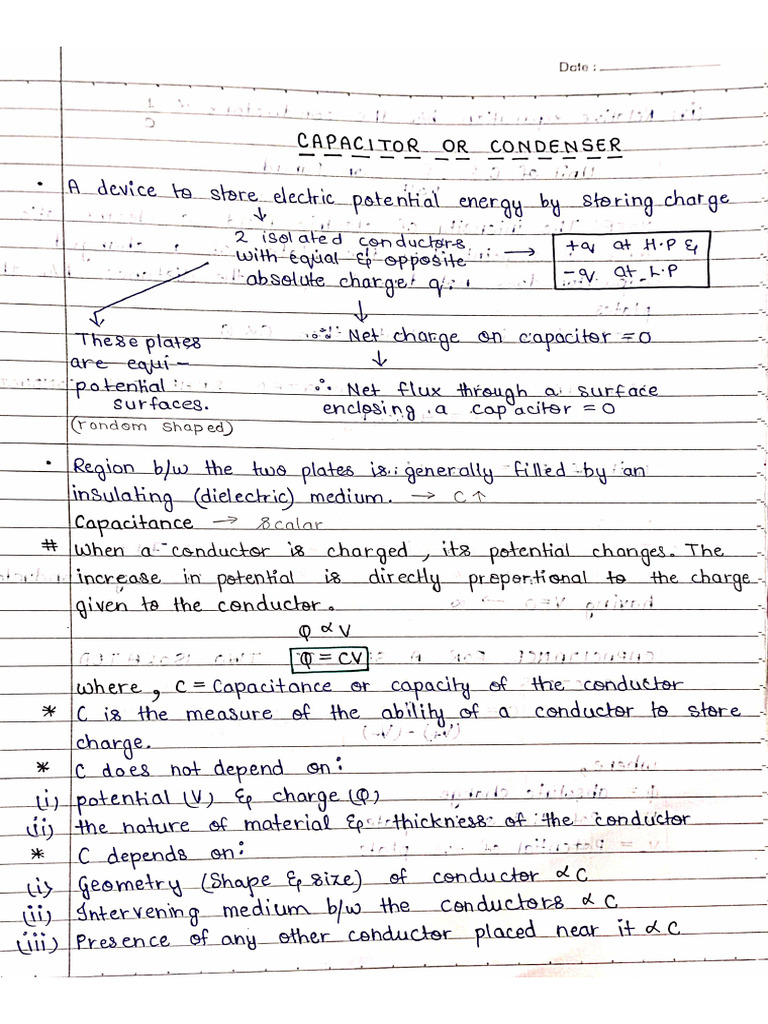 Date :
CAPACITOR OR CONDENSER
• A device to store electric potential energy by storing charge
↓
2 isolated conductors
with equal & opposite
absolute charge q.
→ +q at H.P &
-q at L.P
These plates
are equi-
potential
surfaces.
(random shaped)
↓
∴ Net charge on capacitor = 0
↓
∴ Net flux through a surface
enclosing a capacitor = 0
• Region b/w the two plates is generally filled by an
insulating (dielectric) medium. → C↑
Capacitance → scalar
# When a conductor is charged, its potential changes. The
increase in potential is directly proportional to the charge
given to the conductor.
Q ∝ V
Q = CV
where, C = Capacitance or capacity of the conductor
* C is the measure of the ability of a conductor to store
charge.
* C does not depend on:
(i) potential (V) & charge (Q)
(ii) the nature of material & thickness of the conductor
* C depends on:
(i) Geometry (Shape & size) of conductor ∝ C
(ii) Intervening medium b/w the conductors ∝ C
(iii) Presence of any other conductor placed near it ∝ C